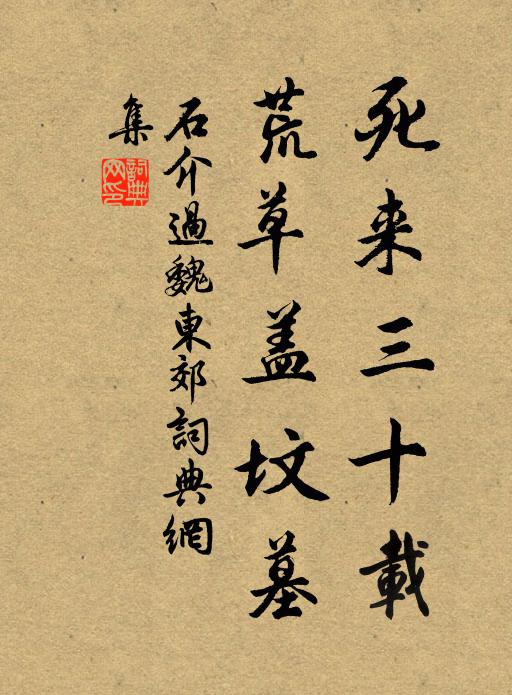 死来三十載
荒草盖坟墓
石介過魏東郊詞典網
集
詞典
网印